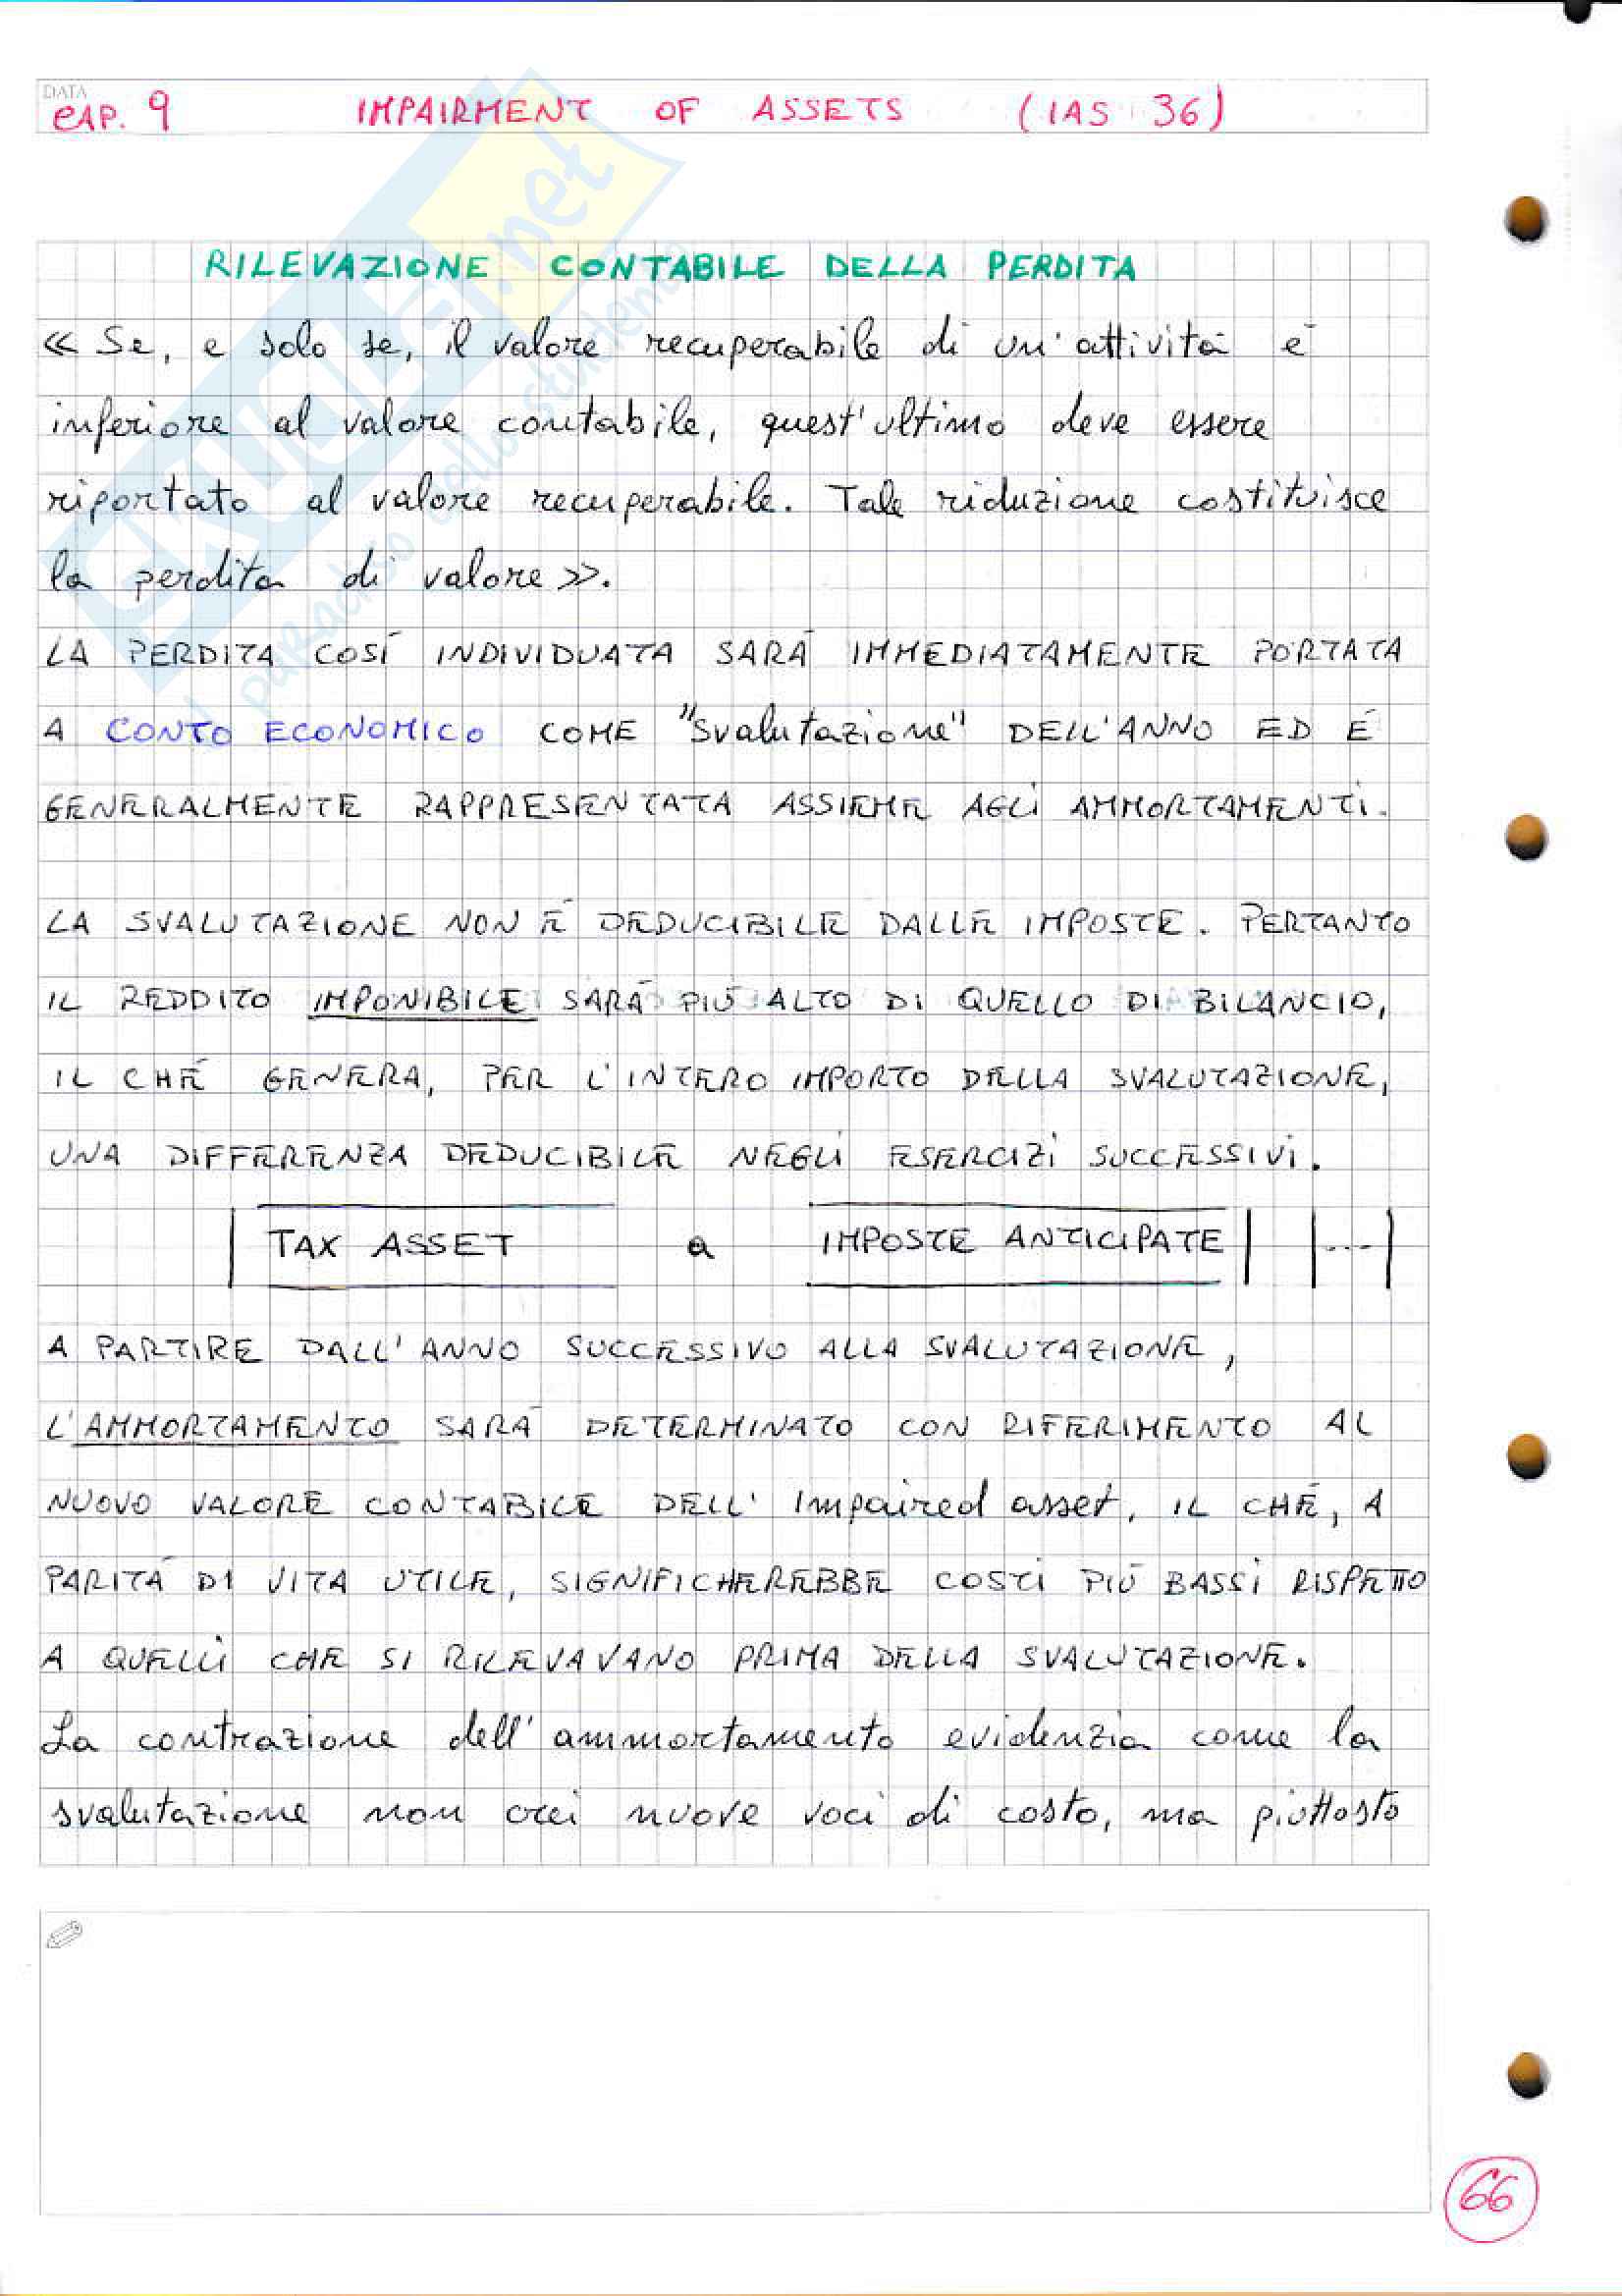 DATA
CAP. 9 IMPAIRMENT OF ASSETS (IAS 36)
RILEVAZIONE CONTABILE DELLA PERDITA
« Se, e solo se, il valore recuperabile di un'attività è
inferiore al valore contabile, quest'ultimo deve essere
riportato al valore recuperabile. Tale riduzione costituisce
la perdita di valore ».
LA PERDITA COSÍ INDIVIDUATA SARÁ IMMEDIATAMENTE PORTATA
A CONTO ECONOMICO COME "svalutazione" DELL'ANNO ED É
GENERALMENTE RAPPRESENTATA ASSIEME AGLI AMMORTAMENTI.
LA SVALUTAZIONE NON É DEDUCIBILE DALLE IMPOSTE. PERTANTO
IL REDDITO IMPONIBILE SARÁ PIÚ ALTO DI QUELLO DI BILANCIO,
IL CHÉ GENERA, PER L'INTERO IMPORTO DELLA SVALUTAZIONE,
UNA DIFFERENZA DEDUCIBILE NEGLI ESERCIZI SUCCESSIVI.
TAX ASSET a IMPOSTE ANTICIPATE | |...|
A PARTIRE DALL'ANNO SUCCESSIVO ALLA SVALUTAZIONE,
L'AMMORTAMENTO SARÁ DETERMINATO CON RIFERIMENTO AL
NUOVO VALORE CONTABILE DELL' Impaired asset, IL CHÉ, A
PARITÁ DI VITA UTILE, SIGNIFICHEREBBE COSTI PIÚ BASSI RISPETTO
A QUELLI CHE SI RILEVAVANO PRIMA DELLA SVALUTAZIONE.
La contrazione dell'ammortamento evidenzia come la
svalutazione non crei nuove voci di costo, ma piuttosto
66
SKUOLA.net
il paradiso dello studente